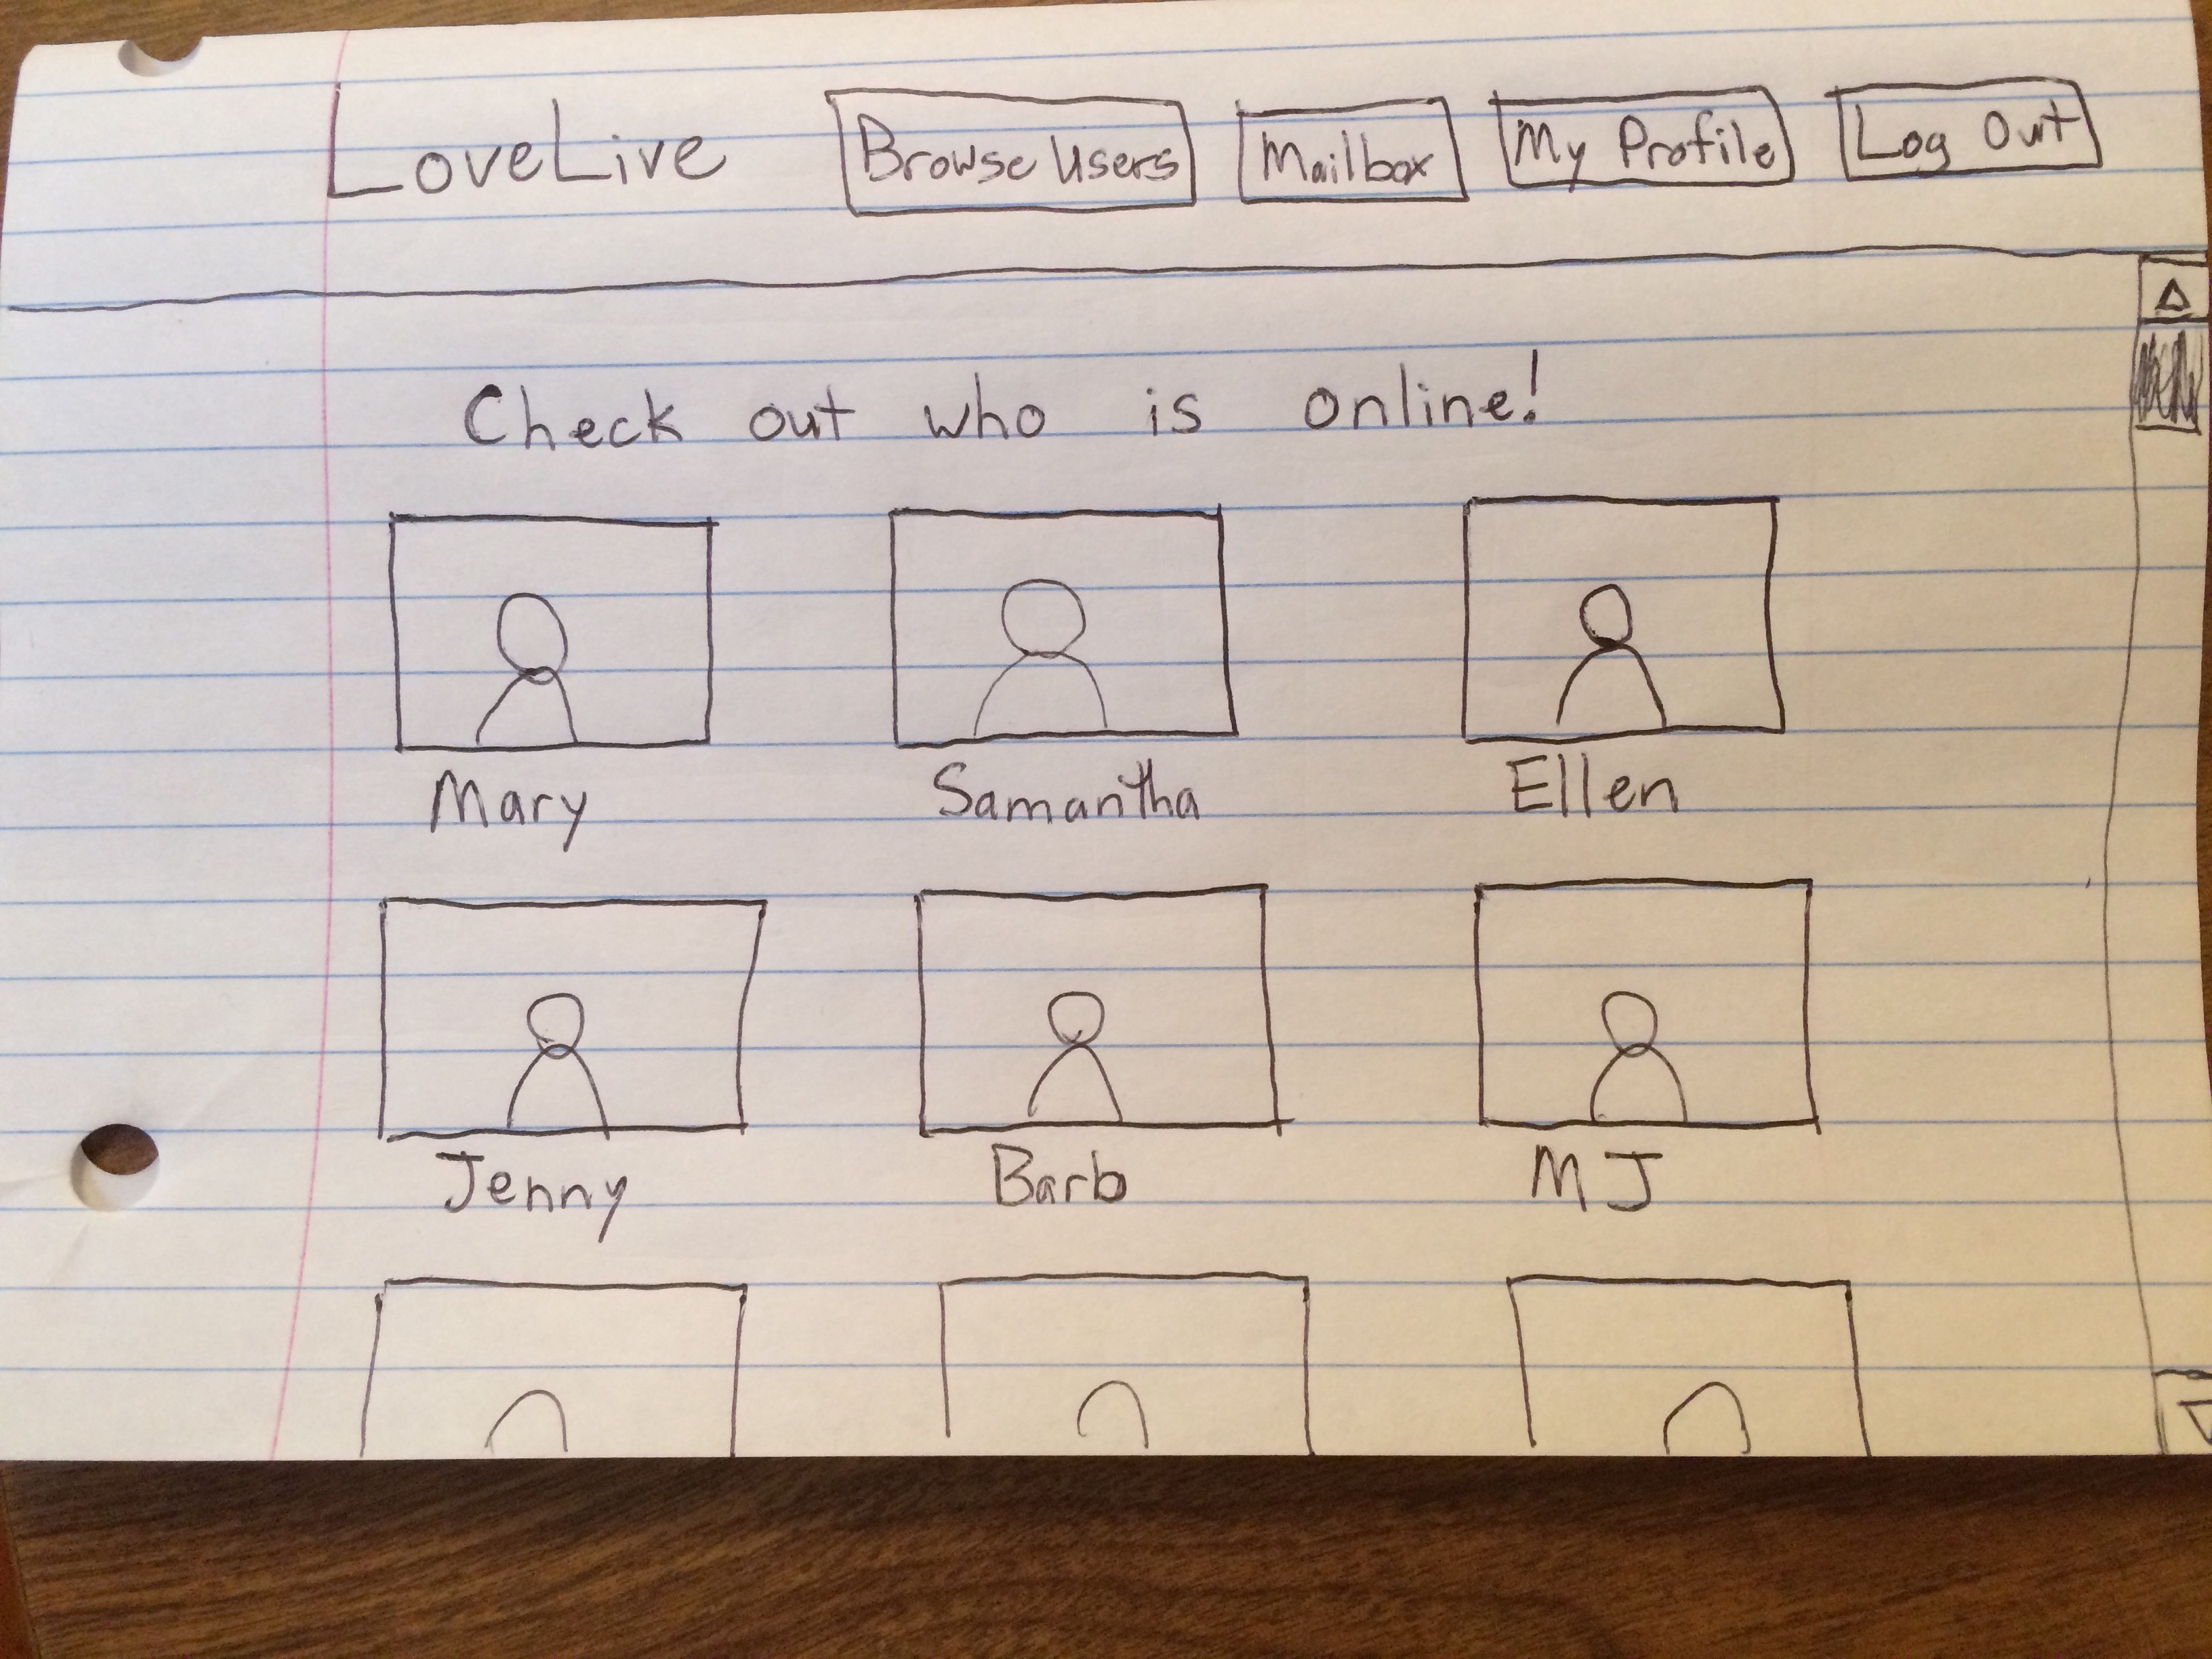 LoveLive Browse Users Mailbox My Profile Log Out
Check out who is online!
Mary Samantha Ellen
Jenny Barb MJ